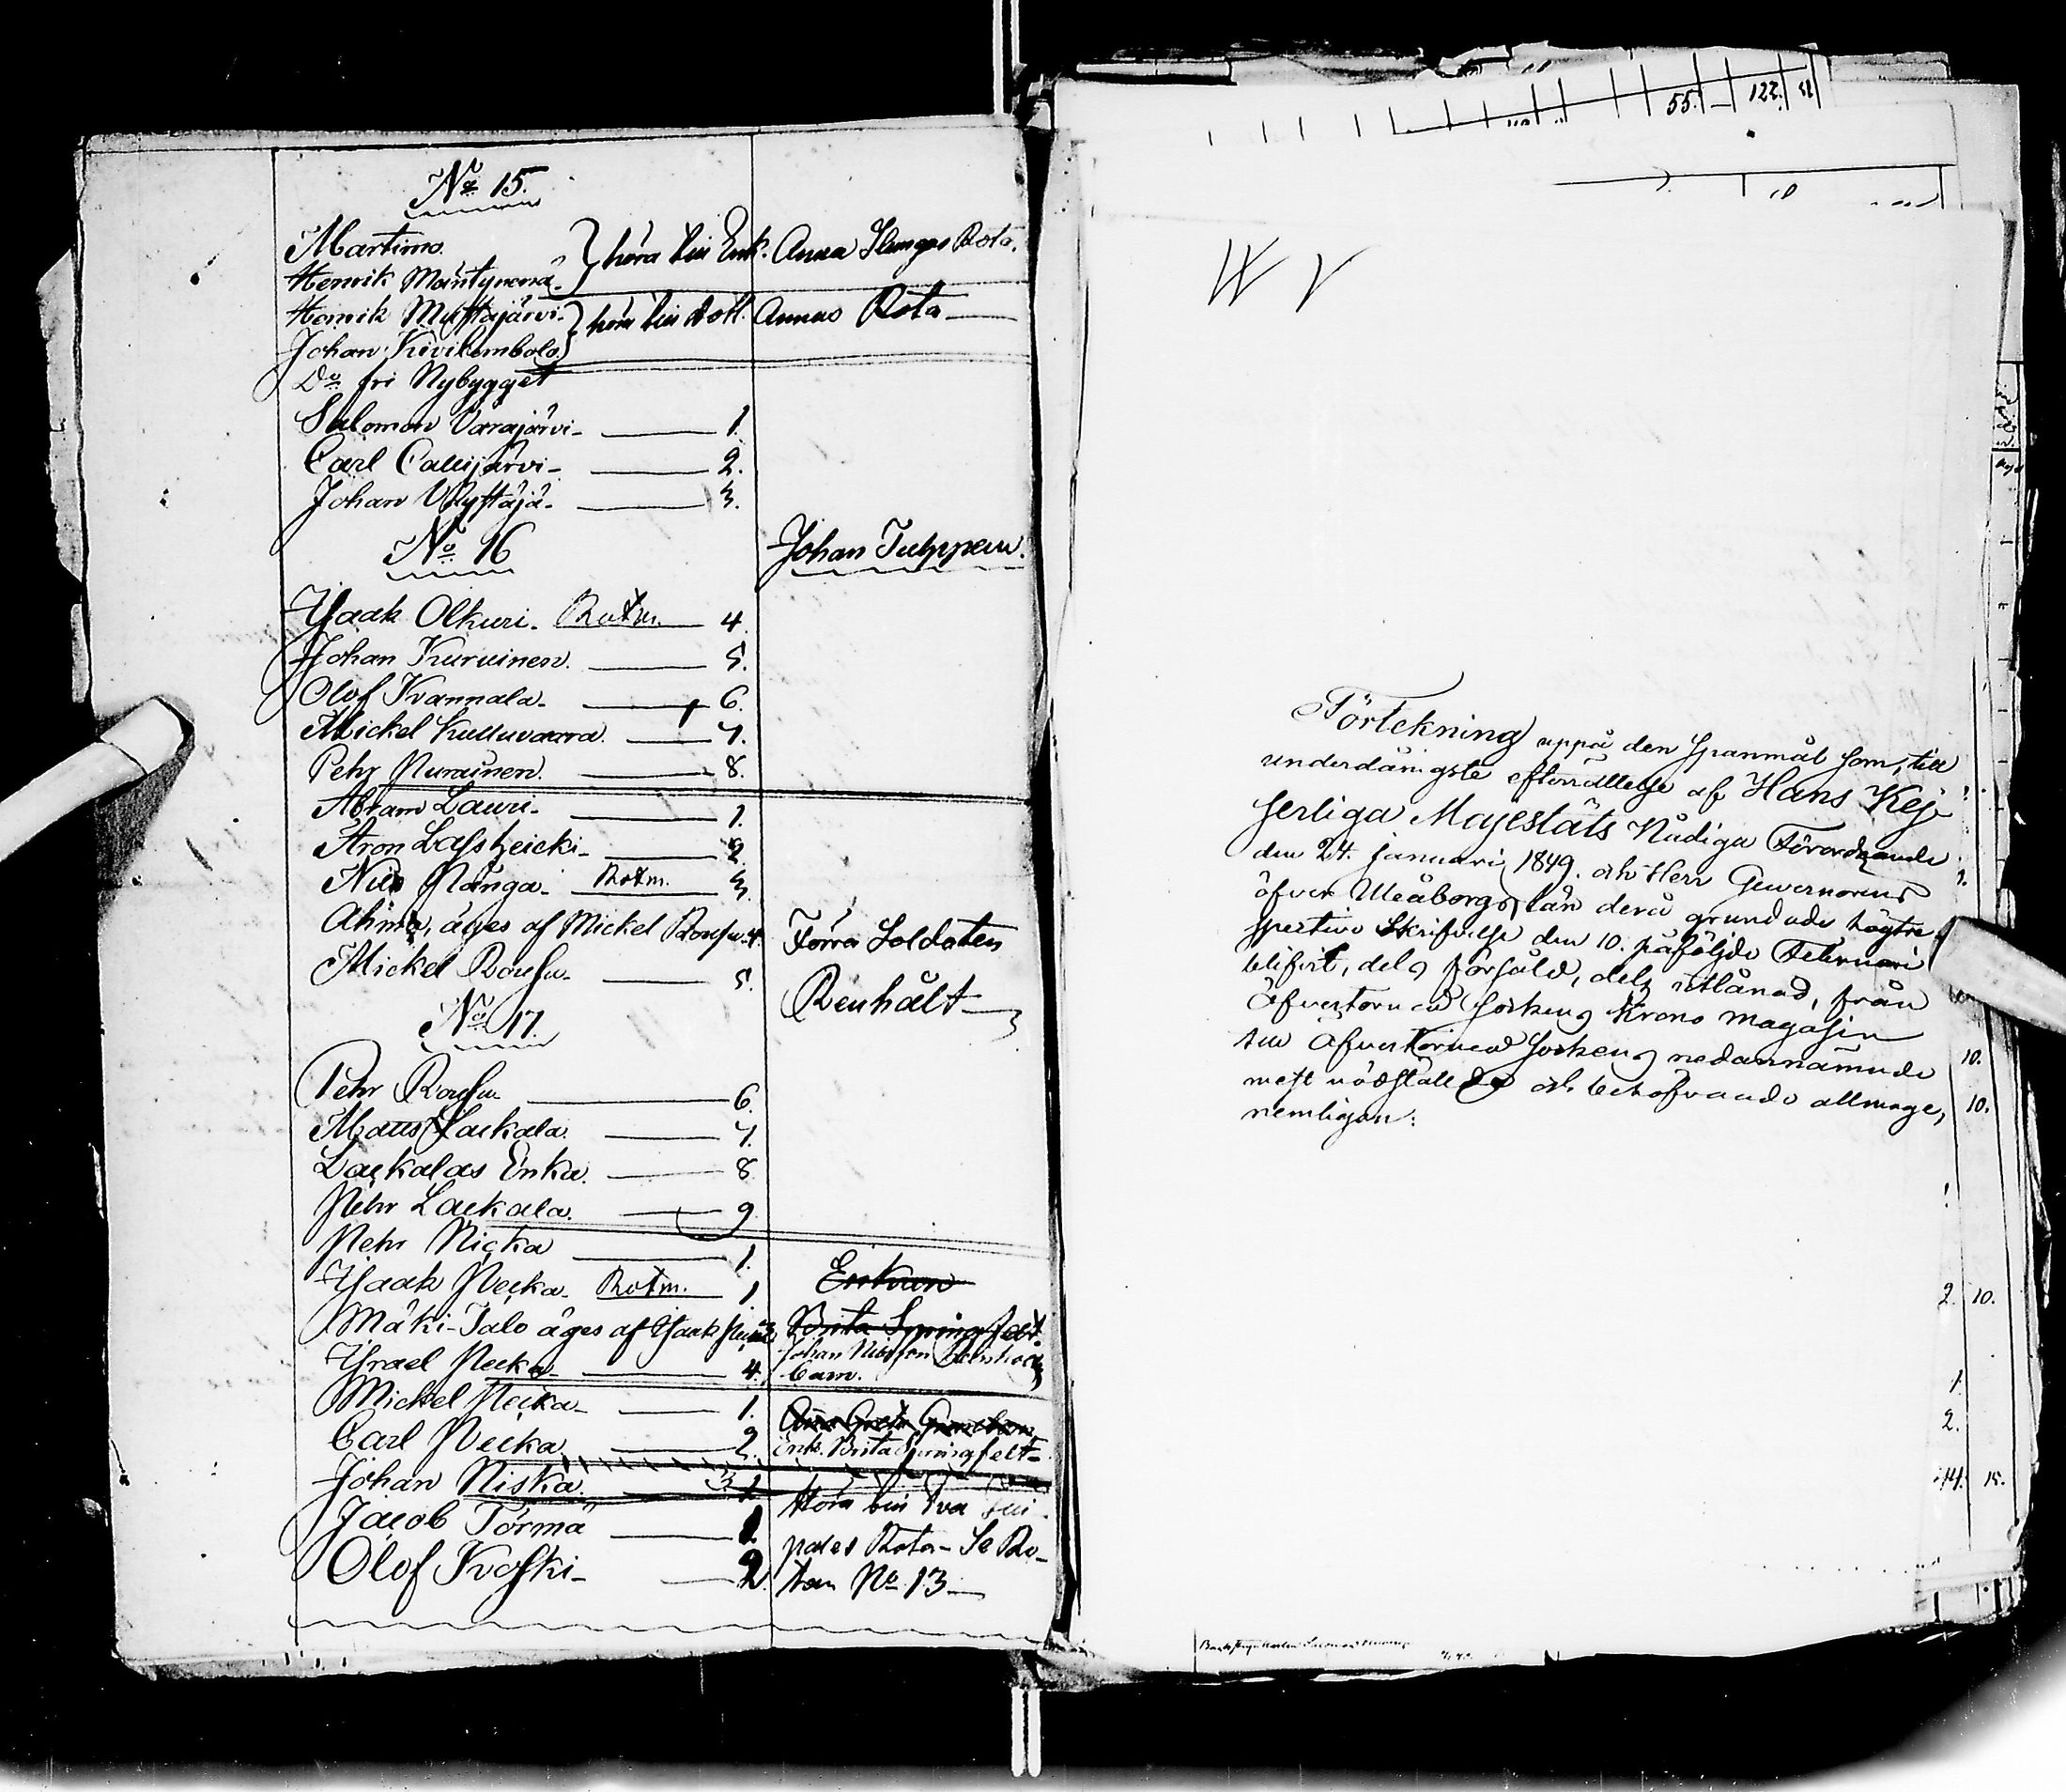 No 15.
Martimo.
Henrik Mäntyvaara
höra till Enk. Anna Slangas Rota.
Henrik Mustajärvi
Johan Kivilombolo
höra till Annas Rota
Do fri Nybygget
Salomon Varajärvi 1.
Carl Callijärvi 2.
Johan Ylystäjä 3.
No 16
Johan Tulppein.
Isaak Olkuri. Rotm. 4.
Johan Kuruinen. 5.
Olof Kvannala 6.
Mickel Kulluvaara. 7.
Pehr Nurainen. 8.
Abram Lauri 1.
Aron Lassheicki 2.
Nils Nånga Rotm. 3.
Ahma, äges af Mickel Roufu. 4.
Mickel Roufu 5.
Förra Soldaten
Renhält
No 17.
Pehr Roufu 6.
Mats Laekala. 7.
Laekalas Enka. 8
Pehr Laekala. 9
Pehr Nicka 1.
Isaak Necka Rotm. 1
Enkan
Mäki-Talo äges af Isaak
Brita Springfelt.
Israel Necka 4.
Johan Nilsson
barn.
Mickel Necka 1.
Carl Necka 2.
Enk. Brita Springfelt
Johan Niska. 3
Jacob Törmä 1
Olof Koski 2.
Höra till Eva
pales Rota - Se Ro-
tan No 13
55. 122.
Förtekning uppå den Spanmål som, till
underdånigste efterrättelse af Hans Kej-
serliga Majestäts Nådiga Förordnande
den 24. Januari 1849. och Herr Gouvernörens
öfver Uleåborgs län derå grundade högtre-
spective Skrifvelse den 10. påföljde Februari
blifvit, dels försåld, dels utlånad, från
Öfvertorneå Sockens Krono Magasin
till Öfvertorneå Sockens nedannämnde
mest nödstälde och behöfvande allmoge,
nemligen:
10.
10.
2. 10.
1.
2.
14. 15.